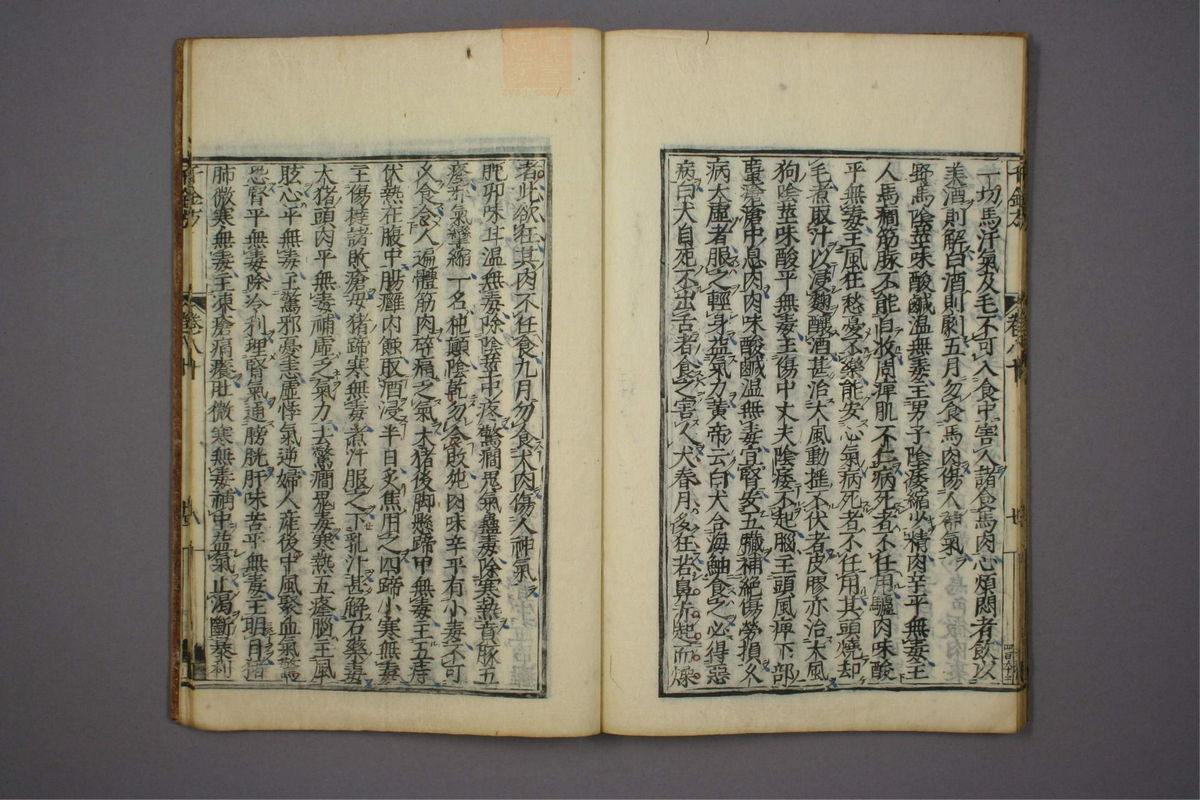 一切馬汗氣及毛不可入食中害人諸食馬肉心煩悶者飲以
美酒則解白酒則劇五月勿食馬肉傷人神氣
野馬陰莖味酸鹹溫無毒主男子陰痿縮少精肉辛平無毒主
人馬癇筋脉不能自收周痹肌不仁病死者不任用驢肉味酸
平無毒主風狂愁憂不樂能安心氣病死者不任用其頭燒却
毛煮取汁以浸麴釀酒甚治大風動搖不伏者皮膠亦治大風
狗陰莖味酸平無毒主傷中丈夫陰痿不起腦主頭風痹下部
瘡瘡中息肉肉味酸鹹溫無毒宜腎安五臟補絕傷勞損久
病大虛者服之輕身益氣力黃帝云白犬合海鮋食之必得惡
病白犬自死不出舌者食之害人犬春月多狂若鼻赤起而燥
者此欲狂其肉不任食九月勿食犬肉傷人神氣
肫卵味甘溫無毒除陰莖中疼驚癇鬼氣蠱毒除寒熱賁豚五
癃邪氣攣縮一名肫顛陰乾勿令敗肫肉味辛平有小毒不可
久食令人遍體筋肉碎痛乏氣大猪後脚懸蹄甲無毒主五痔
伏熱在腹中腸癰內蝕取酒浸半日炙焦用之四蹄小寒無毒
主傷撻諸敗瘡母猪蹄寒無毒煮汁服之下乳汁甚解石藥毒
大猪頭肉平無毒補虛乏氣力去驚癇鬼毒寒熱五癃腦主風
眩心平無毒主驚邪憂恚虛悸氣逆婦人產後中風聚血氣驚
恐腎平無毒除冷利理腎氣通膀胱肝味苦平無毒主明目猪
肺微寒無毒主凍瘡痛癢肚微寒無毒補中益氣止渴斷暴利